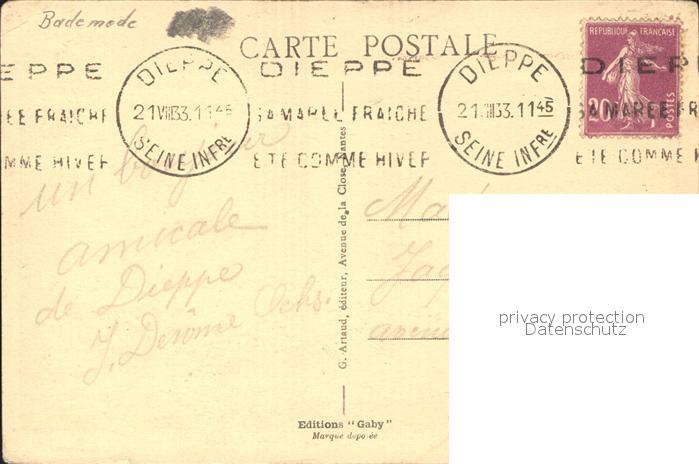 Bademode
CARTE POSTALE
REPUBLIQUE FRANÇAISE
POSTES
EPPE
DIEPPE
DIEPPE
DIEPPE
DIEP
EE FRAICHE
21 VIII 33.11 45
SA MAREE FRAICHE
21 VIII 33.11 45
SA MAREE FR
MME HIVER
SEINE INFRE
ETE COMME HIVER
SEINE INFRE
ETE COMME H
un bonjour
amicale
de Dieppe
J. Derôme Ochs.
G. Artaud, éditeur, Avenue de la Close, Nantes
Editions "Gaby"
Marque deposée
privacy protection
Datenschutz